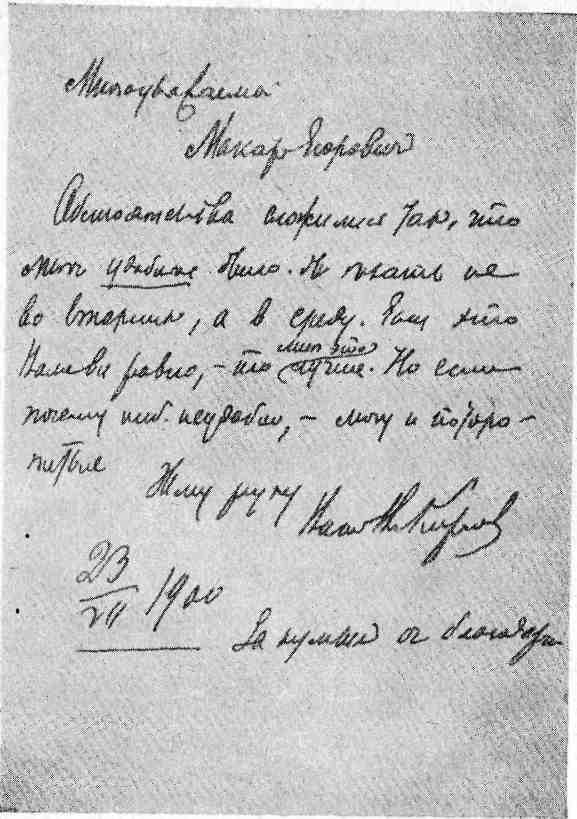 Многоуважаемы
Макар Егорович
Обстоятельства сложились так, что
мне удобнее было бы ехать не
во вторник, а в среду. Если это
Вам все равно, – то мне это лучше. Но если
почему нибудь неудобно, – могу и поторо-
питься
Жму руку
Ваш
23
VII 1900
За